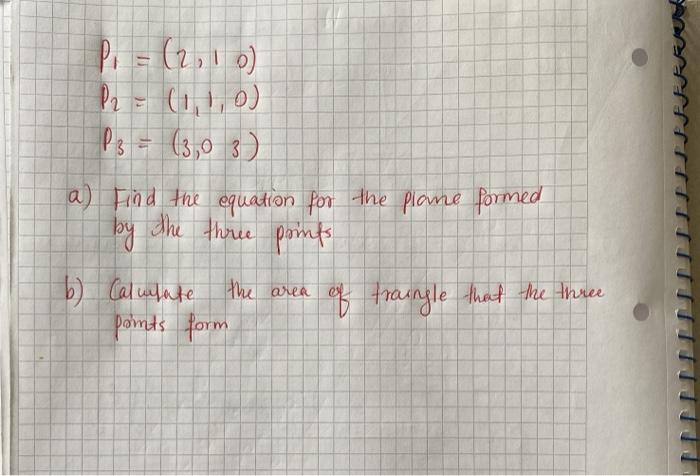 P1 = (2,1 0)
P2 = (1,1,0)
P3 = (3,0 3)
a) Find the equation for the plane formed
by the three points
b) Calculate the area of traingle that the three
points form